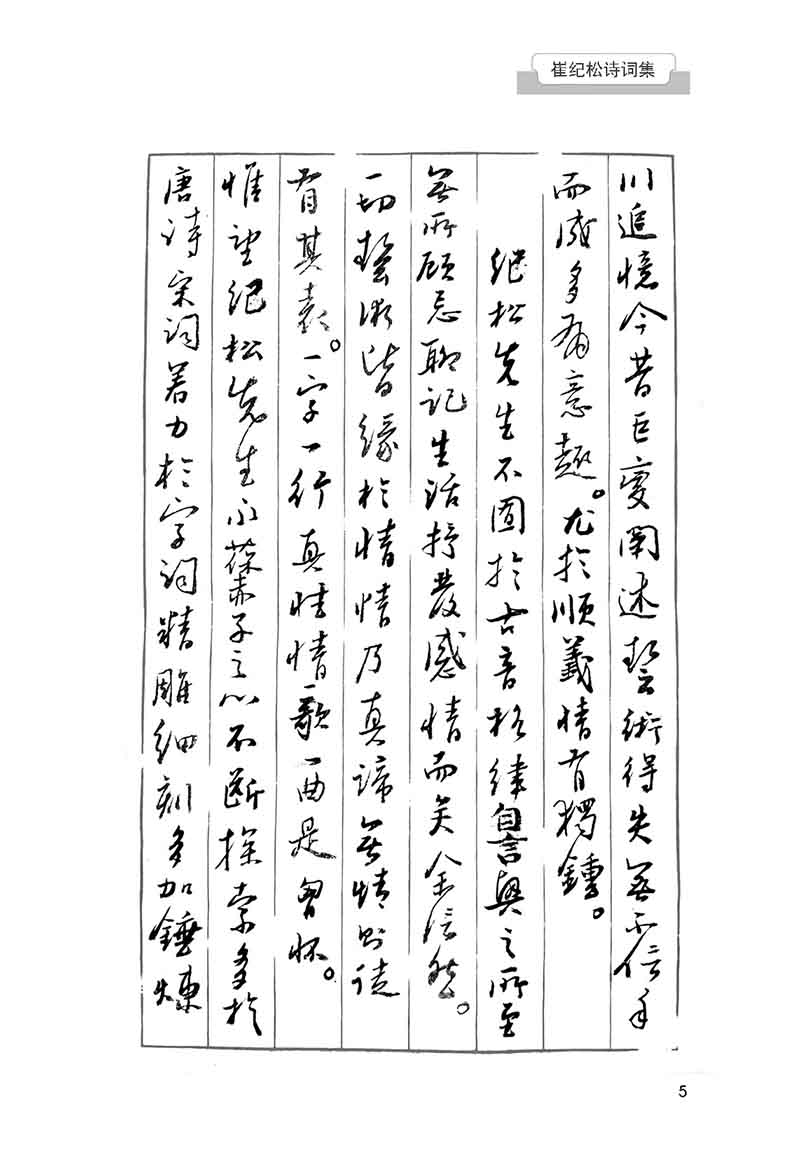 崔纪松诗词集
川追憶今昔巨变阐述藝術得失無不信手
而成多有意趣。尤於順義情有獨鍾。
纪松先生不固於古音格律自言興之所至
無所顾忌聊记生活抒發感情而矣余信然。
一切藝術皆緣於情情乃真諦無情則徒
有其表。一字一行真性情一歌一曲是胸怀。
惟望纪松先生永葆赤子之心不断探索多於
唐诗宋词着力於字词精雕细刻多加錘煉
5